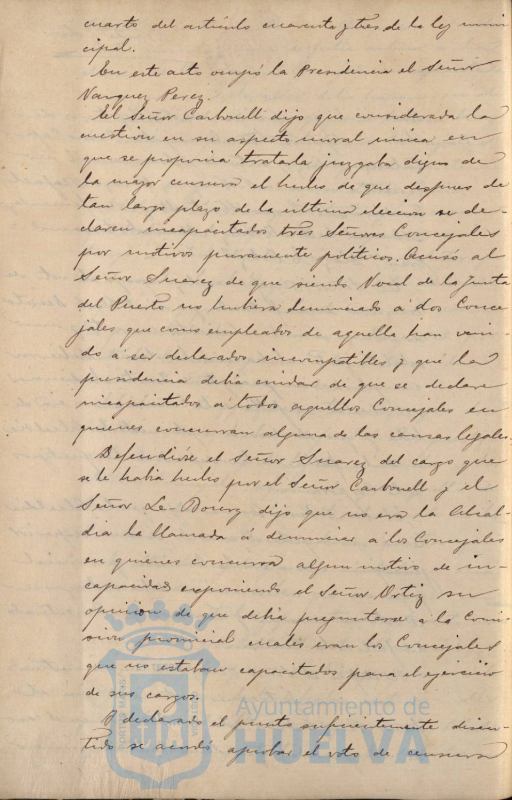 cuarto del artículo cuarenta y tres de la ley muni
cipal.
En este acto ocupó la Presidencia el Señor
Vazquez Perez.
El Señor Carbonell dijo que considerada la
cuestion en su aspecto moral unica en
que se proponia tratarla juzgaba digno de
la mayor censura el hecho de que despues de
tan largo plazo de la última eleccion se de-
claren incapacitados tres Señores Concejales
por motivos puramente politicos. Acusó al
Señor Suarez de que siendo Vocal de la Junta
del Puerto no hubiera denunciado á dos Conce
jales que como empleados de aquella han veni-
do á ser declarados incompatibles y que la
presidencia debia cuidar de que se declare
incapacitados á todos aquellos Concejales en
quienes concurran alguna de las causas legales.
Defendióse el Señor Suarez del cargo que
se le habia hecho por el Señor Carbonell y el
Señor Le-Bourg dijo que no era la Alcal-
dia la llamada á denunciar á los Concejales
en quienes concurra algun motivo de in-
capacidad exponiendo el Señor Ortiz su
opinion de que debia preguntarse á la Comi-
sion provincial cuales eran los Concejales
que no estaban capacitados para el ejercicio
de sus cargos.
Y declarado el punto suficientemente discu-
tido se acordó aprobar el voto de censura
PORTUS MARIS
Ayuntamiento de
HUELVA